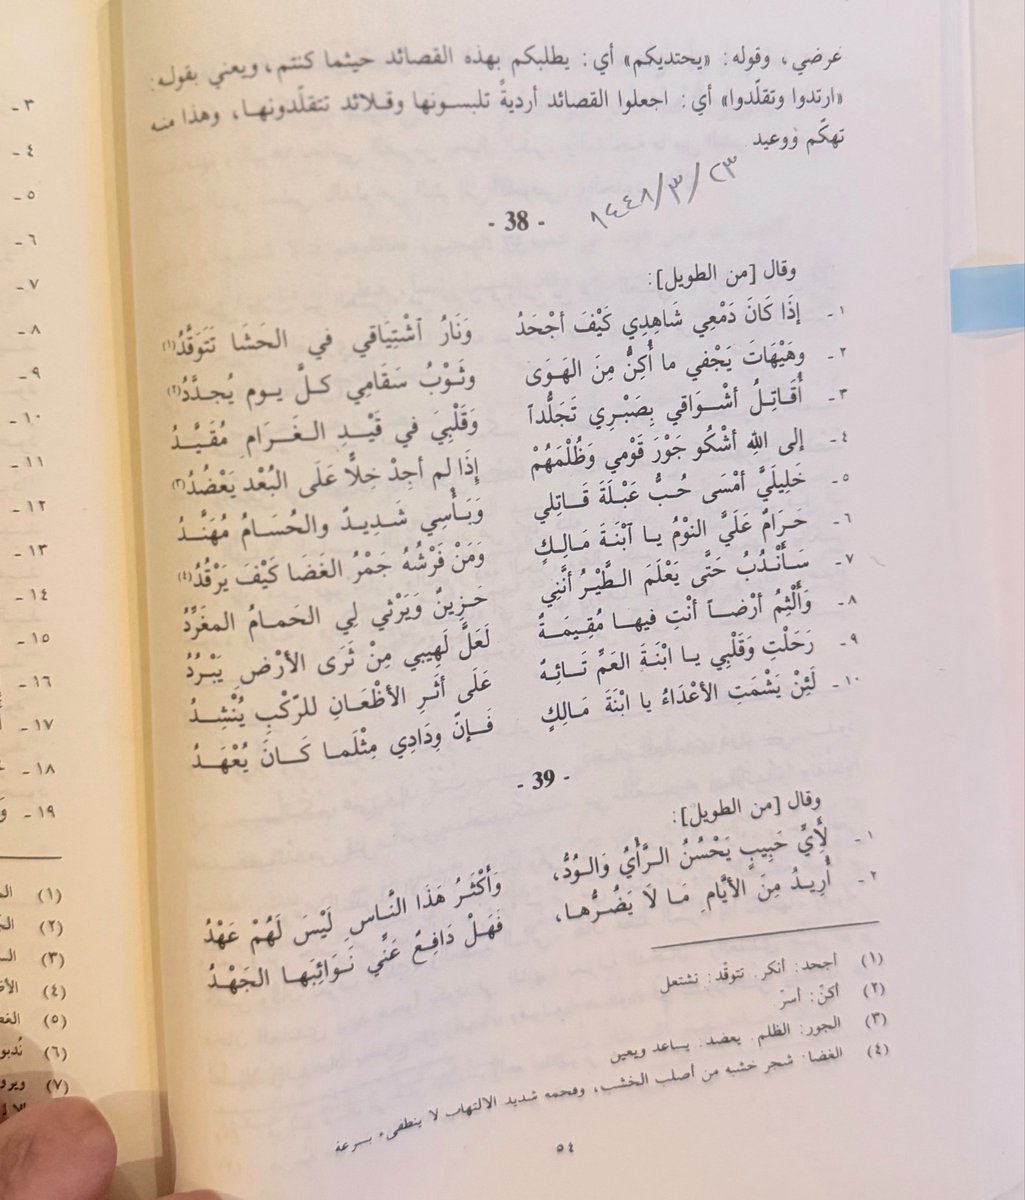 عرضي، وقوله: «يحتديكم» أي: يطلبكم بهذه القصائد حيثما كنتم، ويعني بقوله:
«ارتدوا وتقلّدوا» أي: اجعلوا القصائد أرديةً تلبسونها وقلائد تتقلّدونها، وهذا منه
تهكّم ووعيد.
١٤٤٨/٣/٢٣
- 38 -
وقال [من الطويل]:
١ - إذَا كَانَ دَمْعِي شَاهِدِي كَيْفَ أَجْحَدُ وَنَارُ ٱشْتِيَاقي في الحَشَا تَتَوَقَّدُ(١)
٢ - وهَيْهَاتَ يَخْفي ما أُكِنُّ مِنَ الهَوَى وثَوْبُ سَقَامِي كلَّ يوم يُجدَّدُ(٢)
٣ - أُقَاتِلُ أشْوَاقي بِصَبْرِي تَجَلُّداً وَقَلْبِيَ في قَيْدِ الغَرَامِ مُقَيَّدُ
٤ - إلى اللهِ أشْكُو جَوْرَ قَوْمي وَظُلْمَهُمْ إذَا لم أجِدْ خِلاًّ عَلَى البُعْد يَعْضُدُ(٣)
٥ - خَلِيلَيَّ أمْسَى حُبُّ عَبْلَةَ قَاتِلي وَبَأْسِي شَدِيدٌ والحُسَامُ مُهَنَّدُ
٦ - حَرَامٌ عَلَيَّ النوْمُ يا ٱبْنَةَ مَالِكٍ وَمَنْ فَرْشُهُ جَمْرُ الغَضَا كَيْفَ يَرْقُدُ(٤)
٧ - سَأَنْدُبُ حَتَّى يَعْلَمَ الطَّيْرُ أنَّنِي حَزِينٌ وَيَرْثي لِي الحَمامُ المغَرِّدُ
٨ - وَأَلْثِمُ أرْضاً أنْتِ فيها مُقِيمَةٌ لَعَلَّ لَهِيبي مِنْ ثَرَى الأرْضِ يَبْرُدُ
٩ - رَحَلْتِ وَقَلْبِي يا ابْنَةَ العَمِّ تَائِهٌ عَلَى أثَرِ الأظْعَانِ للرّكْبِ يُنْشِدُ
١٠ - لَئِنْ يَشْمَتِ الأعْدَاءُ يا ابْنَةَ مَالِكٍ فَإنّ وِدَادِي مِثْلَما كَانَ يُعْهَدُ
- 39 -
وقال [من الطويل]:
١ - لأَيِّ حَبِيبٍ يَحْسُنُ الرَّأْيُ وَالوُدُّ، وَأَكْثَرُ هَذَا النَّاسِ لَيْسَ لَهُمْ عَهْدُ
٢ - أُرِيدُ مِنَ الأيَّامِ مَا لاَ يَضُرُّها، فَهَلْ دَافِعٌ عَنِّي نَوَائِبَها الجَهْدُ
(١) أجحد: أنكر. تتوقّد: تشتعل
(٢) أكنّ: أسرّ
(٣) الجور: الظلم. يعضد: يساعد ويعين
(٤) الغضا: شجر خشبه من أصلب الخشب، وفحمه شديد الالتهاب لا ينطفىء بسرعة
٥٤
٣ -
٤ -
٥ -
٦ -
٧ -
٨ -
٩ -
١٠ -
١١ -
١٢ -
١٣ -
١٤ -
١٥ -
١٦ -
١٧ -
١٨ -
١٩ -
(١)
(٢)
(٣)
(٤)
(٥)
(٦)
(٧)